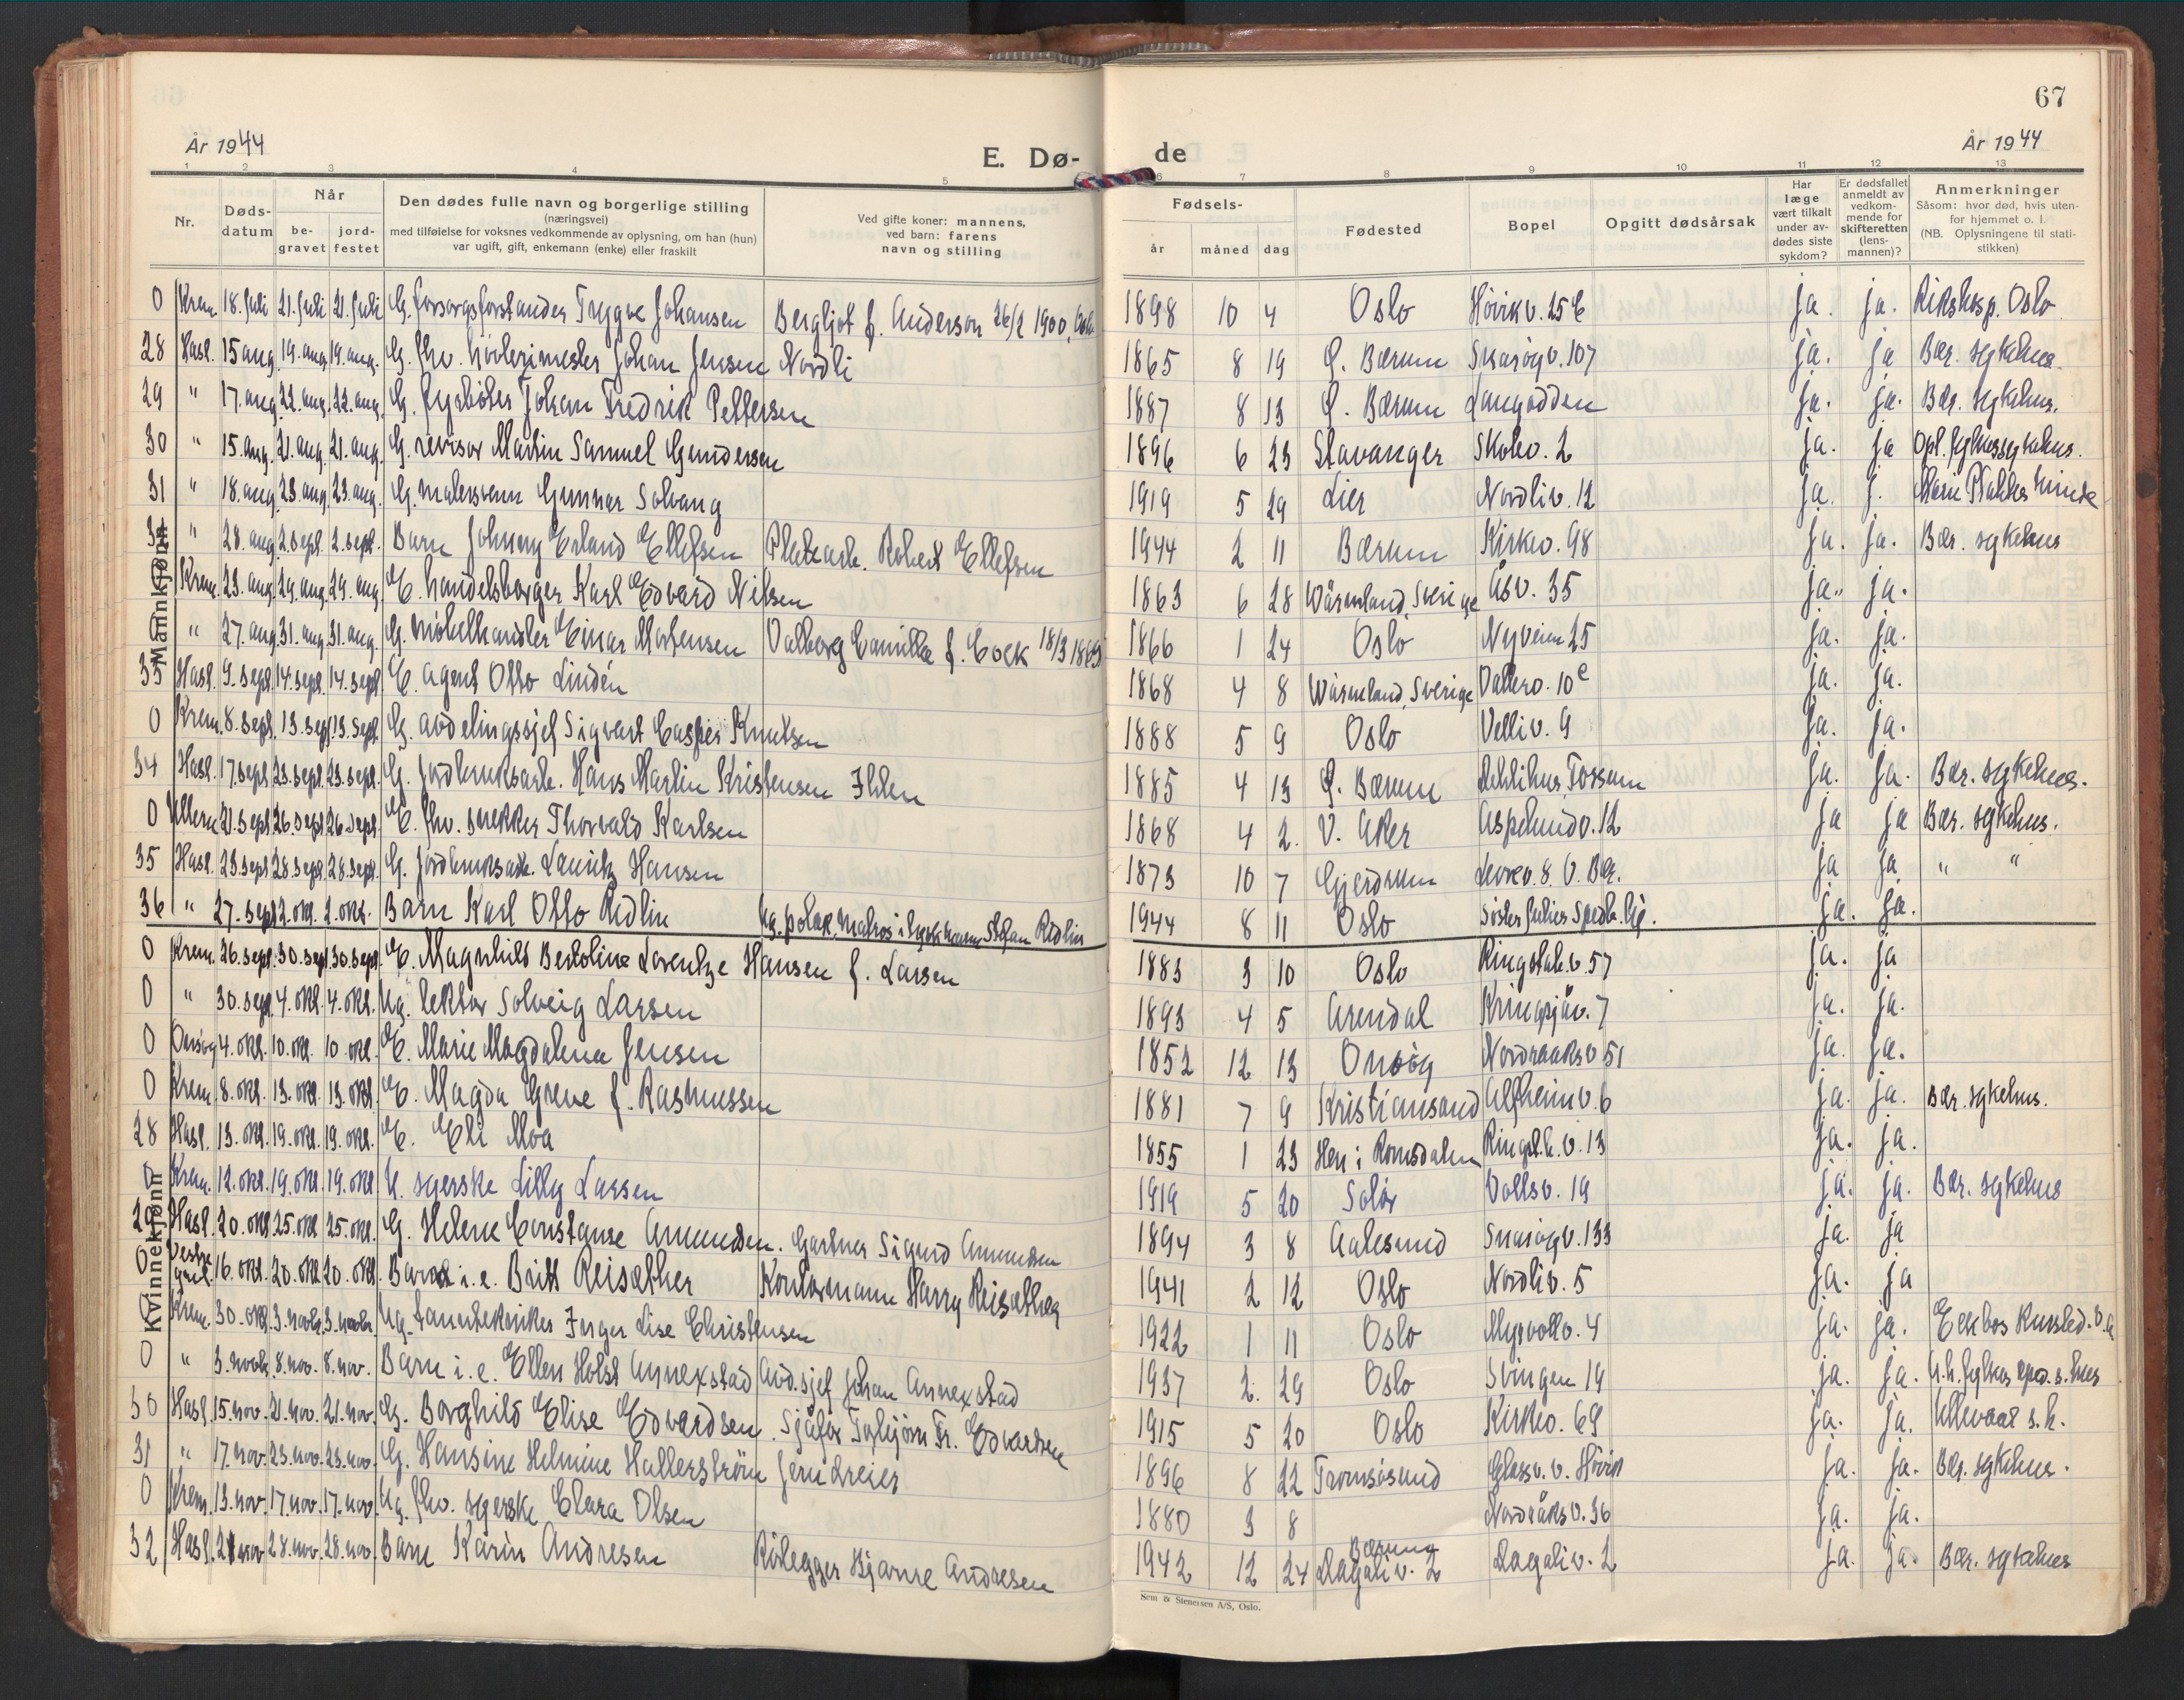 67
År 1944
E. Dø-
de
År 1944
1 2 3 4 5 6 7 8 9 10 11 12 13
Nr.
Døds-
datum
Når
be-
gravet
jord-
festet
Den dødes fulle navn og borgerlige stilling
(næringsvei)
med tilføielse for voksnes vedkommende av oplysning, om han (hun)
var ugift, gift, enkemann (enke) eller fraskilt
Ved gifte koner: mannens,
ved barn: farens
navn og stilling
Fødsels-
år måned dag
Fødested
Bopel
Opgitt dødsårsak
Har
læge
vært tilkalt
under av-
dødes siste
sykdom?
Er dødsfallet
anmeldt av
vedkom-
mende for
skifteretten
(lens-
mannen)?
Anmerkninger
Såsom: hvor død, hvis uten-
for hjemmet o. l.
(NB. Oplysningene til stati-
stikken)
Mannkjønn
0 Krem. 18. juli 21. juli 21. juli G. forsorgsforstander Trygve Johansen Bergljot f. Anderson 26/2 1900, 1898 10 4 Oslo Høvikv. 25 ja. ja. Rikshosp. Oslo
28 Hasl. 15 aug. 19. aug. 19. aug. G. fhv. høvlerimester Johan Jensen Nordli 1865 8 19 Ø. Bærum Snarøyv. 107 ja. ja Bær. sykehus.
29 " 17. aug. 22. aug. 22. aug. G. fyrbøter Johan Fredrik Pettersen 1887 8 13 Ø. Bærum Langodden ja. ja. Bær. sykehus.
30 " 15. aug. 21. aug. 21. aug. G. revisor Martin Samuel Gundersen 1896 6 23 Stavanger Skolev. 2 ja. ja Opl. fylkessykehus.
31 " 18. aug. 23. aug. 23. aug. G. malersvenn Gunnar Solvang 1919 5 29 Lier Nordliv. 12 ja. j. Marie Plahtes minde
" 28. aug. 2. sept. 2. sept. Barn Johnny Erland Ellefsen Platearb. Robert Ellefsen 1944 2 11 Bærum Kirkev. 98 ja. ja. Bær. sykehus
Krem. 23. aug. 29. aug. 29. aug. E. handelsborger Karl Edvard Nilsen 1863 6 28 Wärmland, Sverige Åsv. 35 ja. ja.
" 27. aug. 31. aug. 31. aug. G. møbelhandler Einar Mortensen Valborg Camilla f. Cock 18/3 1869 1866 1 24 Oslo Nyveien 25 ja. ja.
33 Hasl. 9. sept. 14. sept. 14. sept. E. agent Otto Lindén 1868 4 8 Wärmland, Sverige Vallerv. 10c ja. ja.
0 Krem. 8. sept. 13. sept. 13. sept. G. avdelingssjef Sigvart Casper Knutsen 1888 5 9 Oslo Velliv. 9 ja. ja.
34 Hasl. 17. sept. 23. sept. 23. sept. G. jordbruksarb. Hans Martin Kristensen Ihlen 1885 4 13 Ø. Bærum Fossum ja. ja. Bær. sykehus.
0 Ullern 21. sept. 26. sept. 26. sept. E. fhv. snekker Thorvald Karlsen 1868 4 2. V. Aker Aspelundv. 12 ja ja Bær. sykehus.
35 Hasl. 23. sept. 28. sept. 28. sept. G. jordbruksarb. Lauritz Hansen 1873 10 7 Gjerdrum Levrev. 8. V. Bær. ja ja " "
36 " 27. sept. 2. okt. 2. okt. Barn Karl Otto Redlin Ug. polak, matros i tyske marine Stefan Redlin 1944 8 11 Oslo Søster Julies Spedb. hj. ja. ja.
Kvinnekjønn
0 Krem. 26. sept. 30. sept. 30. sept. E. Magnhild Bertoline Lorentze Hansen f. Larsen 1883 3 10 Oslo Ringstab. v. 57 ja. ja
0 " 30. sept. 4. okt. 4. okt. Ug. lektor Solveig Larsen 1893 4 5 Arendal Kringsjåv. 7 ja. ja.
0 Onsøy 4. okt. 10. okt. 10 okt. E. Marie Magdalena Jensen 1852 12 13 Onsøy Nordraaksv 51 ja. ja.
0 Krem. 8. okt. 13. okt. 13. okt. E. Magda Greve f. Rasmussen 1881 7 9 Kristiansand Alfheimv. 6 ja. ja. Bær. sykehus.
28 Hasl. 13. okt. 19. okt. 19. okt. E. Eli Moa 1855 1 23 Hen i Romsdalen Ringst. b. v. 13 ja. ja.
0 Krem. 12. okt. 19. okt. 19. okt. U. syerske Lilly Larsen 1919 5 20 Solør Vollsv. 19 ja. ja. Bær. sykehus
29 Hasl. 20. okt. 25. okt. 25. okt. G. Helene Constanse Amundsen. Gartner Sigurd Amundsen 1894 3 8 Aalesund Snarøyv. 133 ja. ja
0 Vestre gravl. 16. okt. 20. okt. 20. okt. Barn i. e. Britt Reisæther Kontormann Harry Reisæther 1941 2 12 Oslo Nordliv. 5 ja. ja
Krem. 30. okt. 3. novbr. 3. novbr. Ug. tanntekniker Inger Lise Christensen 1922 1 11 Oslo Myrvollv. 4 ja. ja.
0 " 3. novb. 8. nov. 8. nov. Barn i. e. Ellen Holst Annexstad Avd. sjef Johan Annexstad 1937 2. 29 Oslo Svingen 19 ja. ja.
30 Hasl. 15. nov. 21. nov. 21. nov. G. Borghild Elise Edvardsen. Sjåfør Torbjørn Fr. Edvardsen 1915 5 20 Oslo Kirkev. 69 ja. ja. Ullevaal s. h.
31 " 17. nov. 23. nov. 23. nov. G. Hansine Helmine Hallerström Jerndreier 1896 8 22 Tromsøsund Glassv. v. Høvik ja. ja. Bær. sykehus.
0 Krem. 13. nov. 17. nov. 17. nov. Ug. fhv. syerske Clara Olsen 1880 3 8 Nordråksv. 36 ja. ja.
32 Hasl. 21 nov 28. nov. 28. nov. Barn Karin Andresen Rørlegger Bjarne Andresen 1942 12 24 Bærum Dagaliv. 2 Dagaliv. 2 ja. ja. Bær. sykehus
Sem & Stenersen A/S, Oslo.